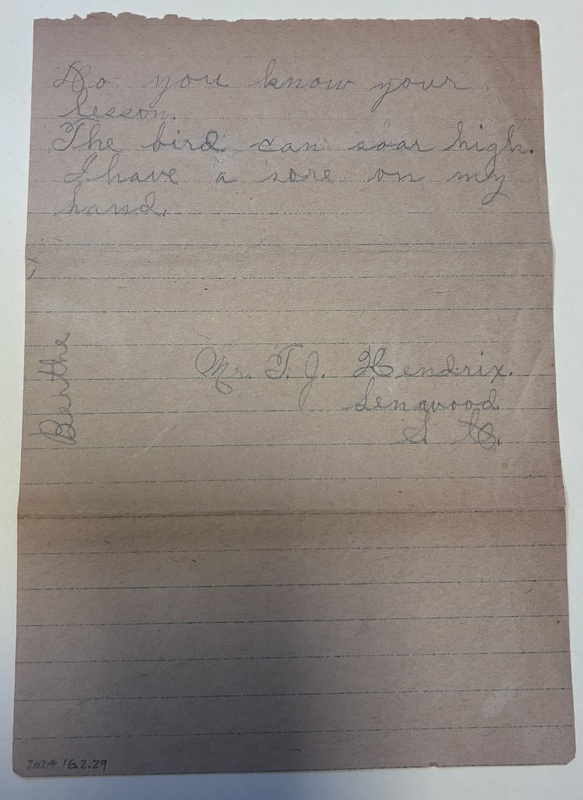 Do you know your
lesson.
The bird can soar high.
I have a sore on my
hand.
Mr. T. J. Hendrix.
S.
Berthe
2024.16.2.29